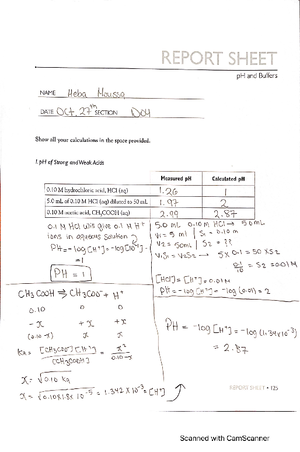 REPORT SHEET
pH and Buffers
NAME Heba Moussa
DATE Oct, 27th SECTION D04
Show all your calculations in the space provided.
I pH of Strong and Weak Acids
Measured pH Calculated pH
0.10 M hydrochloric acid, HCl (aq) 1.26 1
5.0 mL of 0.10 M HCl (aq) diluted to 50 mL 1.97 2
0.10 M acetic acid, CH3COOH (aq) 2.99 2.87
0.1 M HCl will give 0.1 M H+
ions in aqueous solution
PH = -log[H+] = -log[0.1]
= 1
PH = 1
5.0 mL 0.10M HCl → 50mL
V1 = 5 ml | S1 = 0.10m
V2 = 50ml | S2 = ??
V1S1 = V2S2 → 5 x 0.1 = 50 x S2
= S2 = 0.01M
[HCl] = [H+] = 0.01M
PH = -log[H+] = -log(0.01) = 2
CH3COOH ⇌ CH3COO- + H+
0.10 0 0
-x +x +x
(0.10-x) x x
Ka = [CH3COO-][H+] / [CH3COOH] = x² / 0.10-x
x = √0.10 Ka
x = √0.10x1.8x10-5 = 1.342 x 10-3 = [H+]
PH = -log[H+] = -log(1.34x10-3)
= 2.87
REPORT SHEET • 125
Scanned with CamScanner